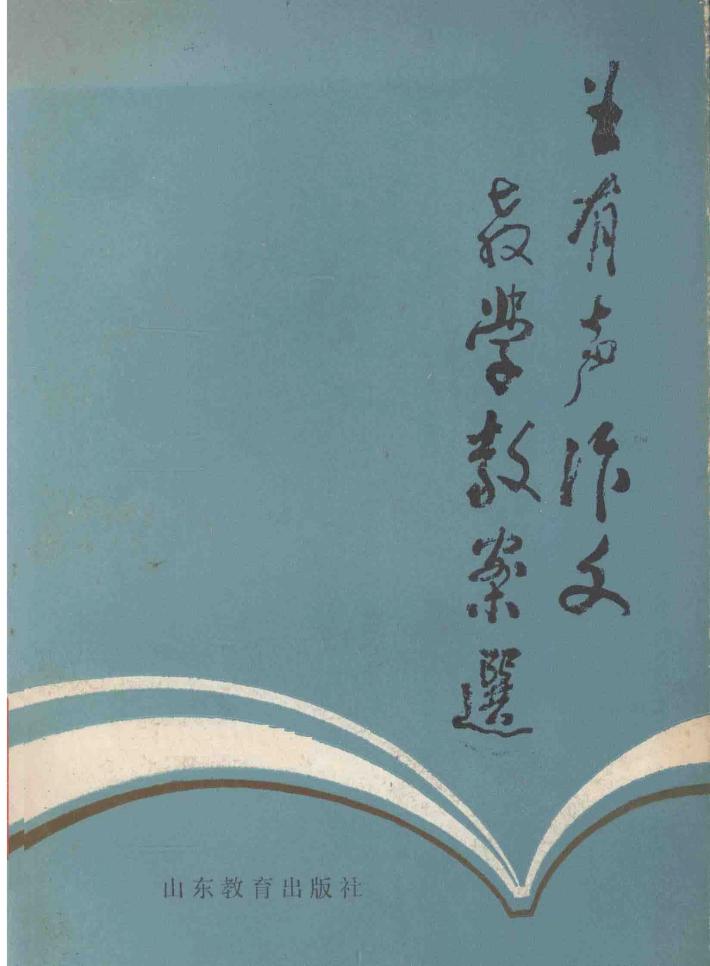 王有声作文
教学教案選
山东教育出版社